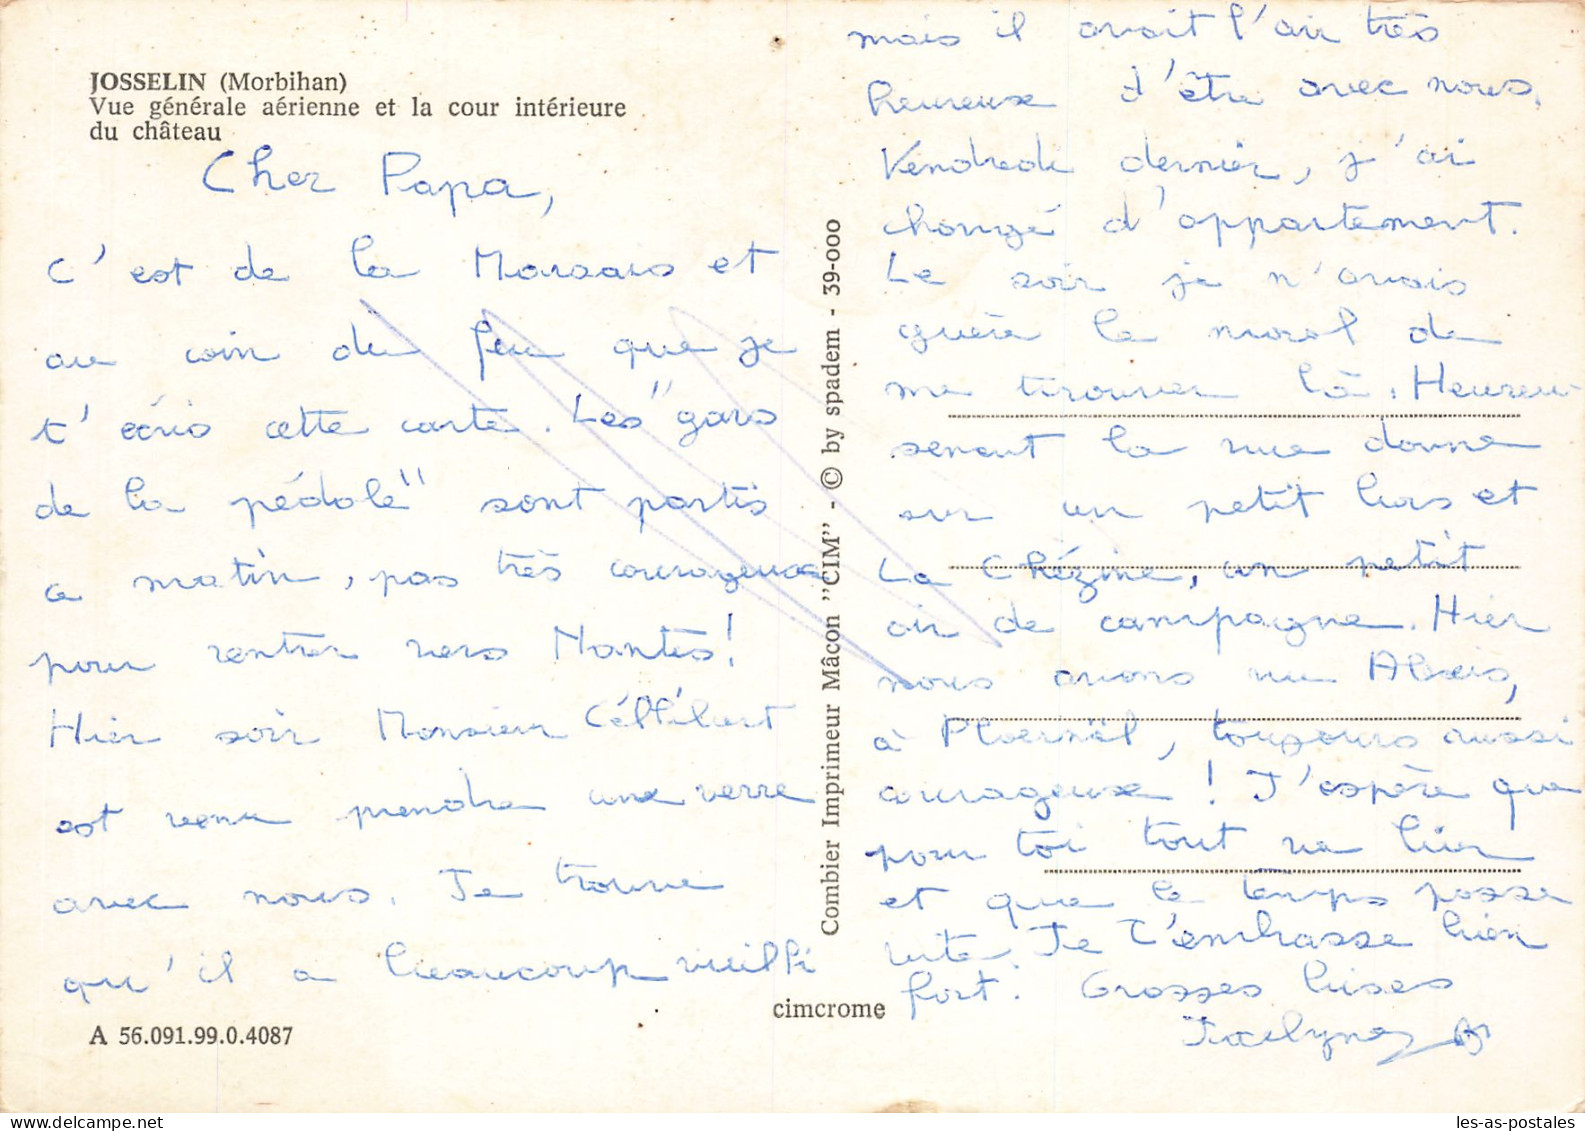 JOSSELIN (Morbihan)
Vue générale aérienne et la cour intérieure
du château
Cher Papa,
C'est de la et
au coin du feu que je
t'écris cette carte. Les "gars
de la pédale" sont partis
ce matin, pas très courageux
pour rentrer vers Nantes!
Hier soir Monsieur
est venu prendre une verre
avec nous. Je trouve
qu'il a beaucoup vieilli
mais il avait l'air très
heureux d'être avec nous.
Vendredi dernier, j'ai
changé d'appartement.
Le soir je n'avais
guère le moral de
me trouver là. Heureu-
sement la vue donne
sur un petit bois et
La Chézine, un petit
air de campagne. Hier
nous avons vu Alexis,
à Ploermël, toujours aussi
courageux ! J'espère que
pour toi tout va bien
et que le temps passe
vite. Je t'embrasse bien
fort. Grosses bises
Jocelyne
Combier Imprimeur Mâcon "CIM" - © by spadem - 39-000
cimcrome
A 56.091.99.0.4087
les-as-postales